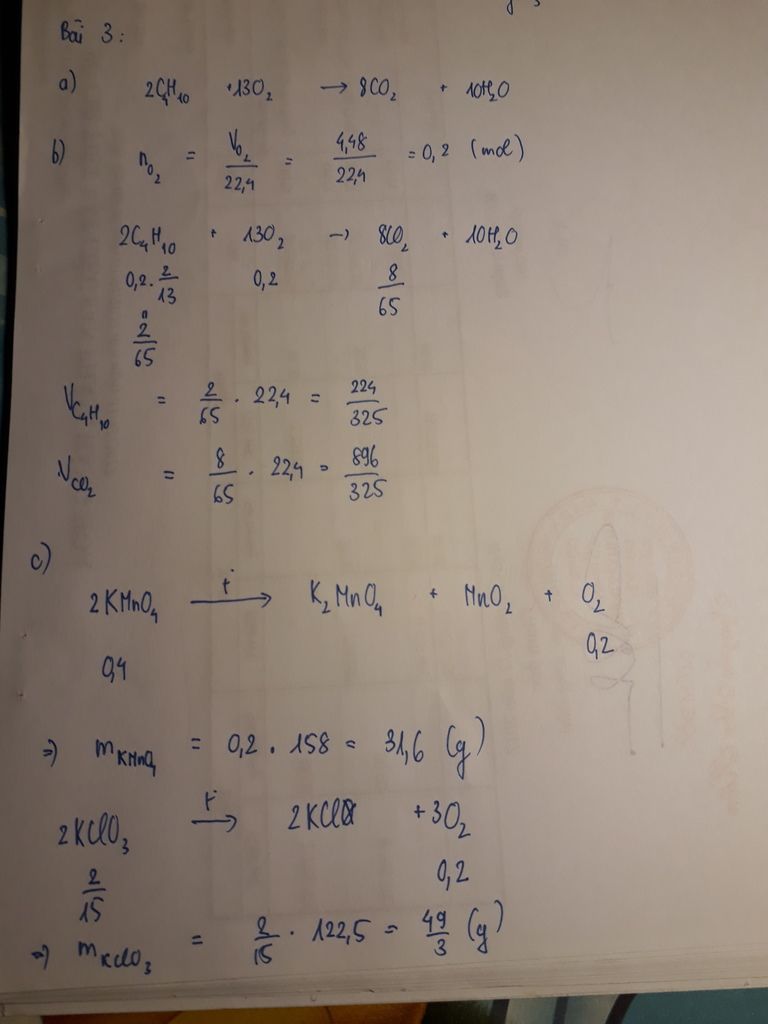 Bài 3:
a) 2C₄H₁₀ + 13O₂ → 8CO₂ + 10H₂O
b) n_O₂ = V_O₂/22,4 = 4,48/22,4 = 0,2 (mol)
2C₄H₁₀ + 13O₂ → 8CO₂ + 10H₂O
0,2 · 2/13 0,2 8/65
"
2/65
V_C₄H₁₀ = 2/65 · 22,4 = 224/325
V_CO₂ = 8/65 · 22,4 = 896/325
c)
2KMnO₄ →(t°) K₂MnO₄ + MnO₂ + O₂
0,4 0,2
⇒ m_KMnO₄ = 0,2 · 158 = 31,6 (g)
2KClO₃ →(t°) 2KCl + 3O₂
2/15 0,2
⇒ m_KClO₃ = 2/15 · 122,5 = 49/3 (g)